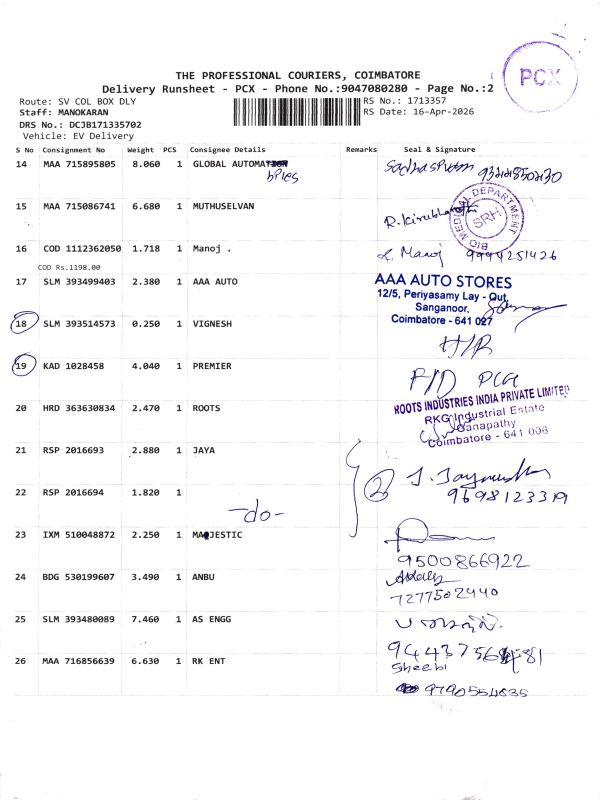 PCX
THE PROFESSIONAL COURIERS, COIMBATORE
Delivery Runsheet - PCX - Phone No.:9047080280 - Page No.:2
Route: SV COL BOX DLY
RS No.: 1713357
Staff: MANOKARAN
RS Date: 16-Apr-2026
DRS No.: DCJB171335702
Vehicle: EV Delivery
S No Consignment No Weight PCS Consignee Details Remarks Seal & Signature
14 MAA 715895805 8.060 1 GLOBAL AUTOMATION
BIO MEDICAL DEPARTMENT
SRH
15 MAA 715086741 6.680 1 MUTHUSELVAN
16 COD 1112362050 1.718 1 Manoj . Manoj 9994251426
COD Rs.1198.00
17 SLM 393499403 2.380 1 AAA AUTO
AAA AUTO STORES
12/5, Periyasamy Lay - Out,
Sanganoor,
Coimbatore - 641 027
18 SLM 393514573 0.250 1 VIGNESH
H/R
19 KAD 1028458 4.040 1 PREMIER
20 HRD 363630834 2.470 1 ROOTS
ROOTS INDUSTRIES INDIA PRIVATE LIMITED
RKG Industrial Estate
Ganapathy
Coimbatore - 641 006
21 RSP 2016693 2.880 1 JAYA
2
22 RSP 2016694 1.820 1
9698123319
-do-
23 IXM 510048872 2.250 1 MAJESTIC
9500866922
24 BDG 530199607 3.490 1 ANBU
7277502440
25 SLM 393480089 7.460 1 AS ENGG
26 MAA 716856639 6.630 1 RK ENT
Sheebi
9790554835